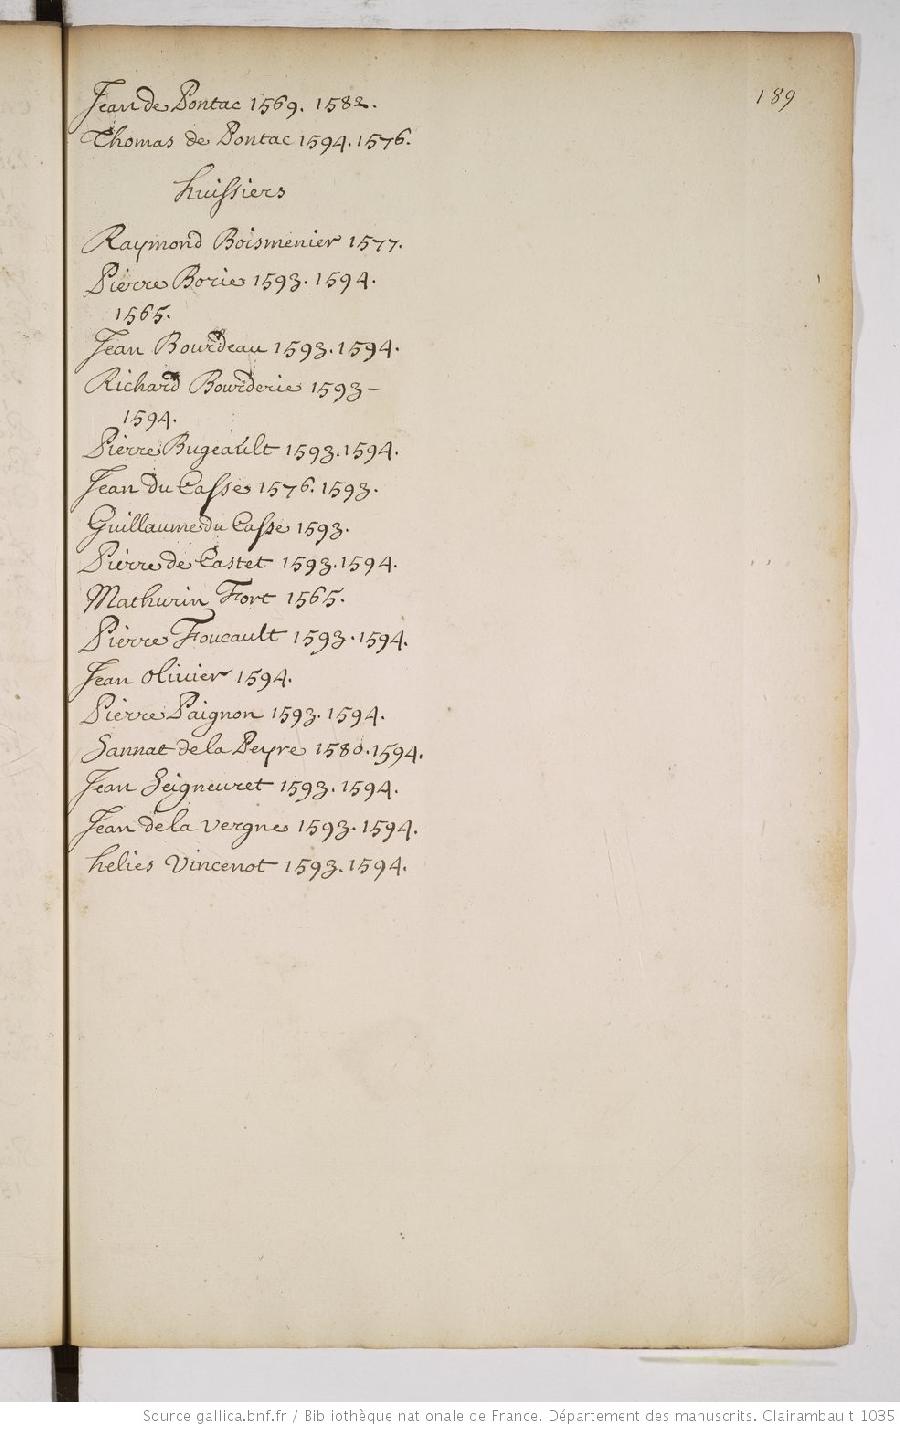 189
Jean de Pontac 1569. 1582.
Thomas de Pontac 1594. 1576.
huissiers
Raymond Boismenier 1577.
Pierre Borie 1593. 1594.
1565.
Jean Bourdeau 1593. 1594.
Richard Bourderie 1593 –
1594.
Pierre Bugeault 1593. 1594.
Jean du Casse 1576. 1593.
Guillaume du Casse 1593.
Pierre de Castet 1593. 1594.
Mathurin Fort 1565.
Pierre Foucault 1593. 1594.
Jean Olivier 1594.
Pierre Paignon 1593. 1594.
Sannat de la Peyre 1580. 1594.
Jean Seigneuret 1593. 1594.
Jean de la Vergne 1593. 1594.
helies Vincenot 1593. 1594.
Source gallica.bnf.fr / Bibliothèque nationale de France. Département des manuscrits. Clairambault 1035